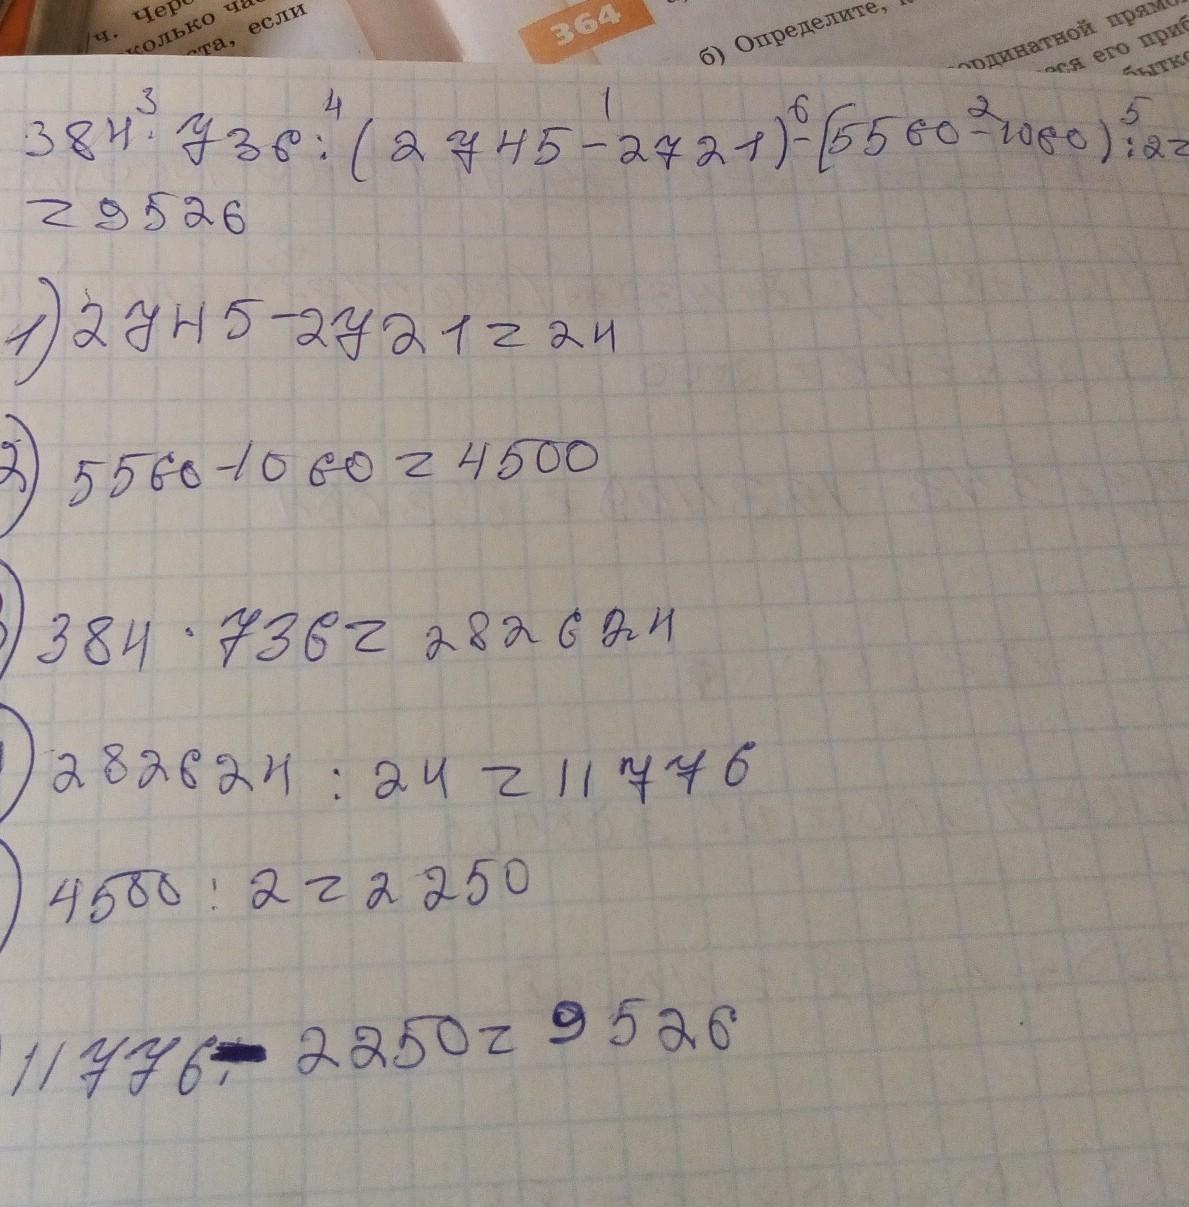 ч. Чер
колько ча
ста, если
364
б) Определите,
ординатной прямо
его приб
бытко
384 · 736 : (2745 - 2721) - (5560 - 1060) : 2 =
3 4 1 6 2 5
= 9526
1) 2745 - 2721 = 24
2) 5560 - 1060 = 4500
) 384 · 736 = 282624
) 282624 : 24 = 11776
) 4500 : 2 = 2250
11776 - 2250 = 9526